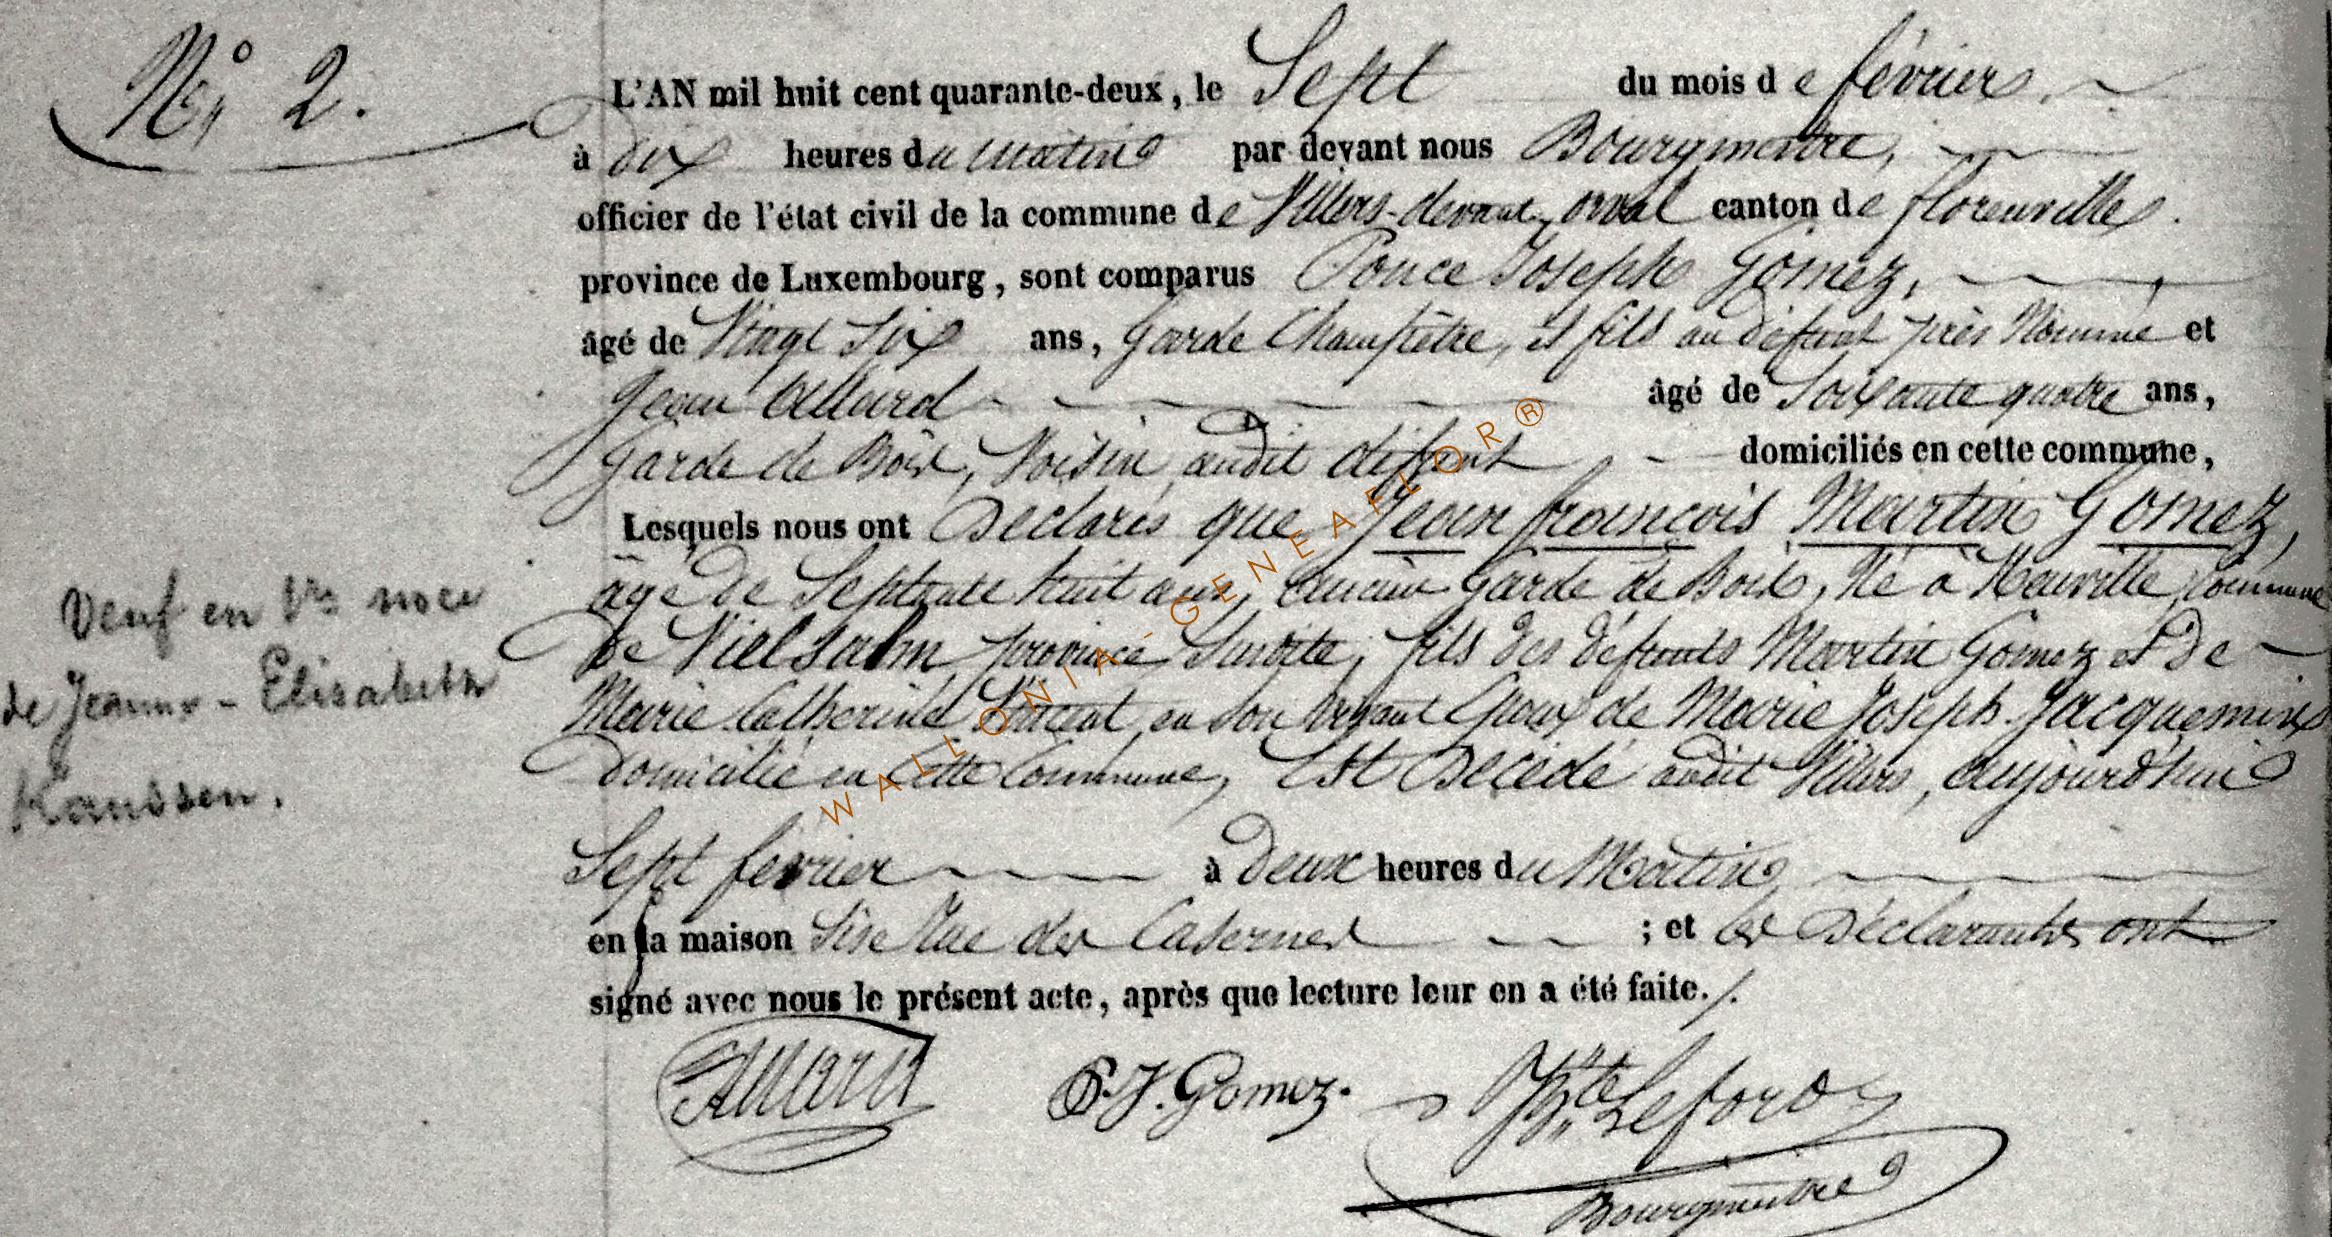 N° 2.
L'AN mil huit cent quarante-deux, le Sept du mois de février,
à dix heures du matin par devant nous Bourgmestre,
officier de l'état civil de la commune de Villers-devant-orval canton de florenville.
province de Luxembourg, sont comparus Ponce Joseph Gomez,
âgé de Vingt Six ans, Garde Champêtre, et fils au défunt près Nommé et
Jean Allard âgé de Soixante quatre ans,
Garde de Bois, Voisin audit défunt domiciliés en cette commune,
Lesquels nous ont Déclarés que Jean françois Martin Gomez,
âgé de Septante huit ans, ancien Garde de Bois, Né à Neuville, Commune
de Vielsalm province Susdite, fils des défunts Martin Gomez et de
Marie Catherine en son vivant Epoux de Marie Joseph Jacquemin
Domicilié en Cette Commune, Est Décédé audit Villers, aujourd'hui
Sept février à Deux heures du Matin
en sa maison Sise Rue des Casernes ; et les Déclarants ont
signé avec nous le présent acte, après que lecture leur en a été faite./.
Veuf en 1res noce
de Jeanne-Elisabeth
Kanssen.
Allard P.J. Gomez. Bte
Bourgmestre
WALLONIA-GENEAFLOR®